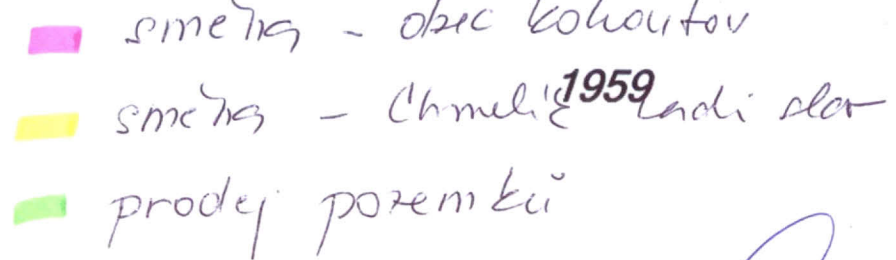 směna - obec Kohoutov
směna - Chmelíč 1959 Ladislav
prodej pozemků